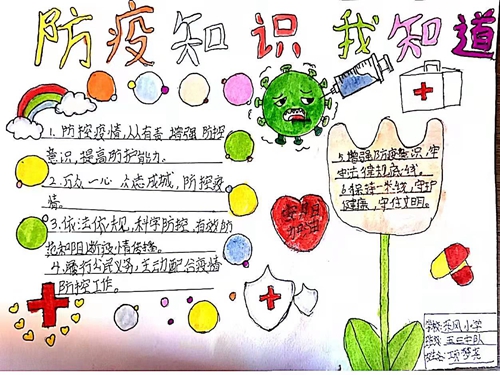 防疫知识 我知道
1.防控疫情,从有责 增强 防控
意识,提高防护能力。
2.万众一心 众志成城,防控疫
情。
3.依法依规,科学防控,有效防
范和
4.履行公民义务,主动配合疫情
防控工作。
5.增强防疫意识,守
法律规底线。
6.保持一米线,守护
健康,守住文明。
加油
学校:东风小学
班级:五三中队
姓名:项梦尧